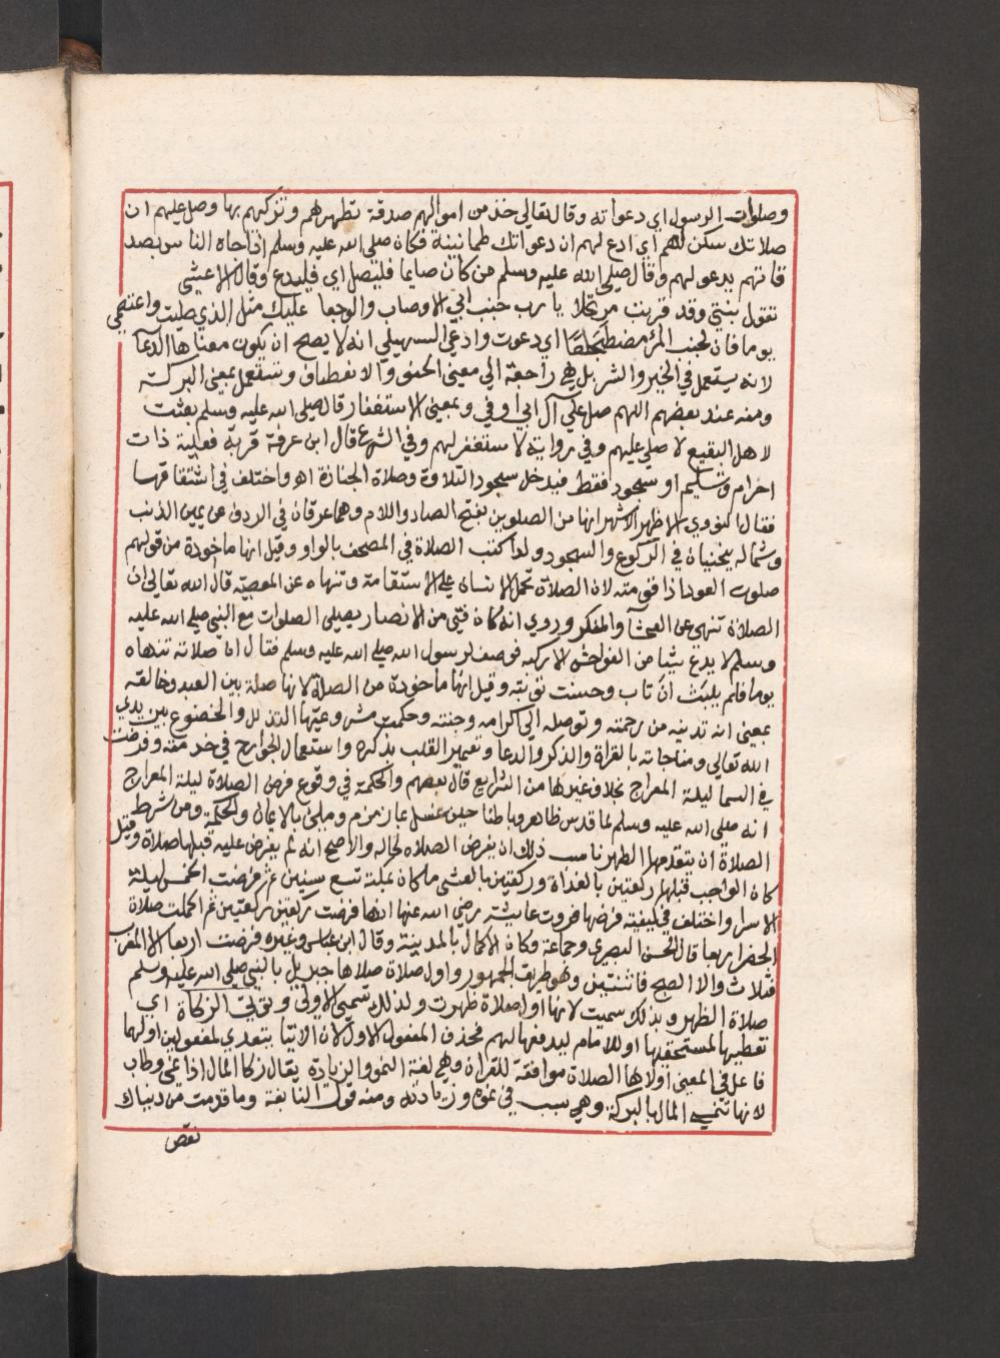 وصلوات الرسول اي دعواته وقال تعالي خذ من اموالهم صدقة تطهرهم وتزكيهم بها وصل عليهم ان
صلاتك سكن لهم اي ادع لهم ان دعواتك طمانينة فكان صلي الله عليه وسلم اذا جاه الناس بصد
قاتهم يدعو لهم وقال صلي الله عليه وسلم من كان صايما فليصل اي فليدع وقال الاعشي
تقول بنتي وقد قربت مرتحلا يا رب جنب ابي الاوصاب والوجعا عليك مثل الذي صليت واغتمضي
يوما فان لجنب المرء مضطجعا اي دعوت وادعي السهيلي انه لا يصح ان يكون معناها الدعا
لانه يستعمل في الخير والشر بل هي راجعة الي معني الحنو والانعطاف وتستعمل بمعني البركة
ومنه عند بعضهم اللهم صل علي آل ابي اوفي وبمعني الاستغفار قال صلي الله عليه وسلم بعثت
لاهل البقيع لاصلي عليهم وفي رواية لاستغفر لهم وفي الشرع قال ابن عرفة قربة فعلية ذات
احرام وتسليم او سجود فقط فيدخل سجود التلاوة وصلاة الجنازة اهو واختلف في اشتقاقها
فقال النووي الاظهر الاشهر انها من الصلوين بفتح الصاد واللام وهما عرقان في الردف عن يمين الذنب
وشماله ينحنيان في الركوع والسجود ولذا كتب الصلاة في المصحف بالواو وقيل انها ماخوذة من قولهم
صلوت العود اذا قومته لان الصلاة تحمل الانسان علي الاستقامة وتنهاه عن المعصية قال الله تعالي ان
الصلاة تنهي عن الفحشا والمنكر وروي انه كان فتي من الانصار يصلي الصلوات مع النبي صلي الله عليه
وسلم لا يدع شيا من الفواحش الا ركبه فوصف لرسول الله صلي الله عليه وسلم فقال ان صلاته تنهاه
يوما فلم يلبث ان تاب وحسنت توبته وقيل انها ماخوذة من الصلة لانها صلة بين العبد وخالقه
بمعني انه تدنيه من رحمته وتوصله الي كرامه وجنته وحكمت مشروعيتها التذلل والخضوع بين يدي
الله تعالي ومناجاته بالقراة والذكر والدعا وتعمير القلب بذكره واستعمال الجوارح في خدمته وفرضت
في السما ليلة المعراج بخلاف غيرها من الشرايع قال بعضهم والحكمة في وقوع فرض الصلاة ليلة المعراج
انه صلي الله عليه وسلم لما قدس ظاهرا وباطنا حين غسل بما زمزم وملئ بالايمان والحكمة ومن شرط
الصلاة ان يتقدمها الطهر ناسب ذلك ان يفرض الصلاه لحاله والاصح انه لم يفرض عليه قبلها صلاة وقيل
كان الواجب قبلها ركعتين بالغداة وركعتين بالعشي ما كان بمكة تسع سنين ثم فرضت الخمس ليلة
الاسرا واختلف في كيفية فرضها فروت عايشة رضي الله عنها انها فرضت ركعتين ركعتين ثم اكملت صلاة
الحضر اربعا قال الحسن البصري وجماعة وكان الاكمال بالمدينة وقال ابن عباس وغيره فرضت اربعا الا المغرب
فثلاث والا الصبح فاثنتين وهو طريقة الجمهور واول صلاة صلاها جبريل بالنبي صلي الله عليه وسلم
صلاة الظهر وبذلك سميت لانها اول صلاة ظهرت ولذلك تسمي الاولي وتوتي الزكاة اي
تعطيها لمستحقيها او للامام ليدفعها لهم فحذف المفعول الاول لان الايتا يتعدي لمفعولين اولهما
فاعل في المعني اولاها الصلاة موافقة للقران وهي لغة النمو والزيادة يقال زكا المال اذا نمي وطاب
لانها تنمي المال بالبركة وهي سبب في نموه وزيادته ومنه قول النابغة وما قدمت من دنياك
نقص